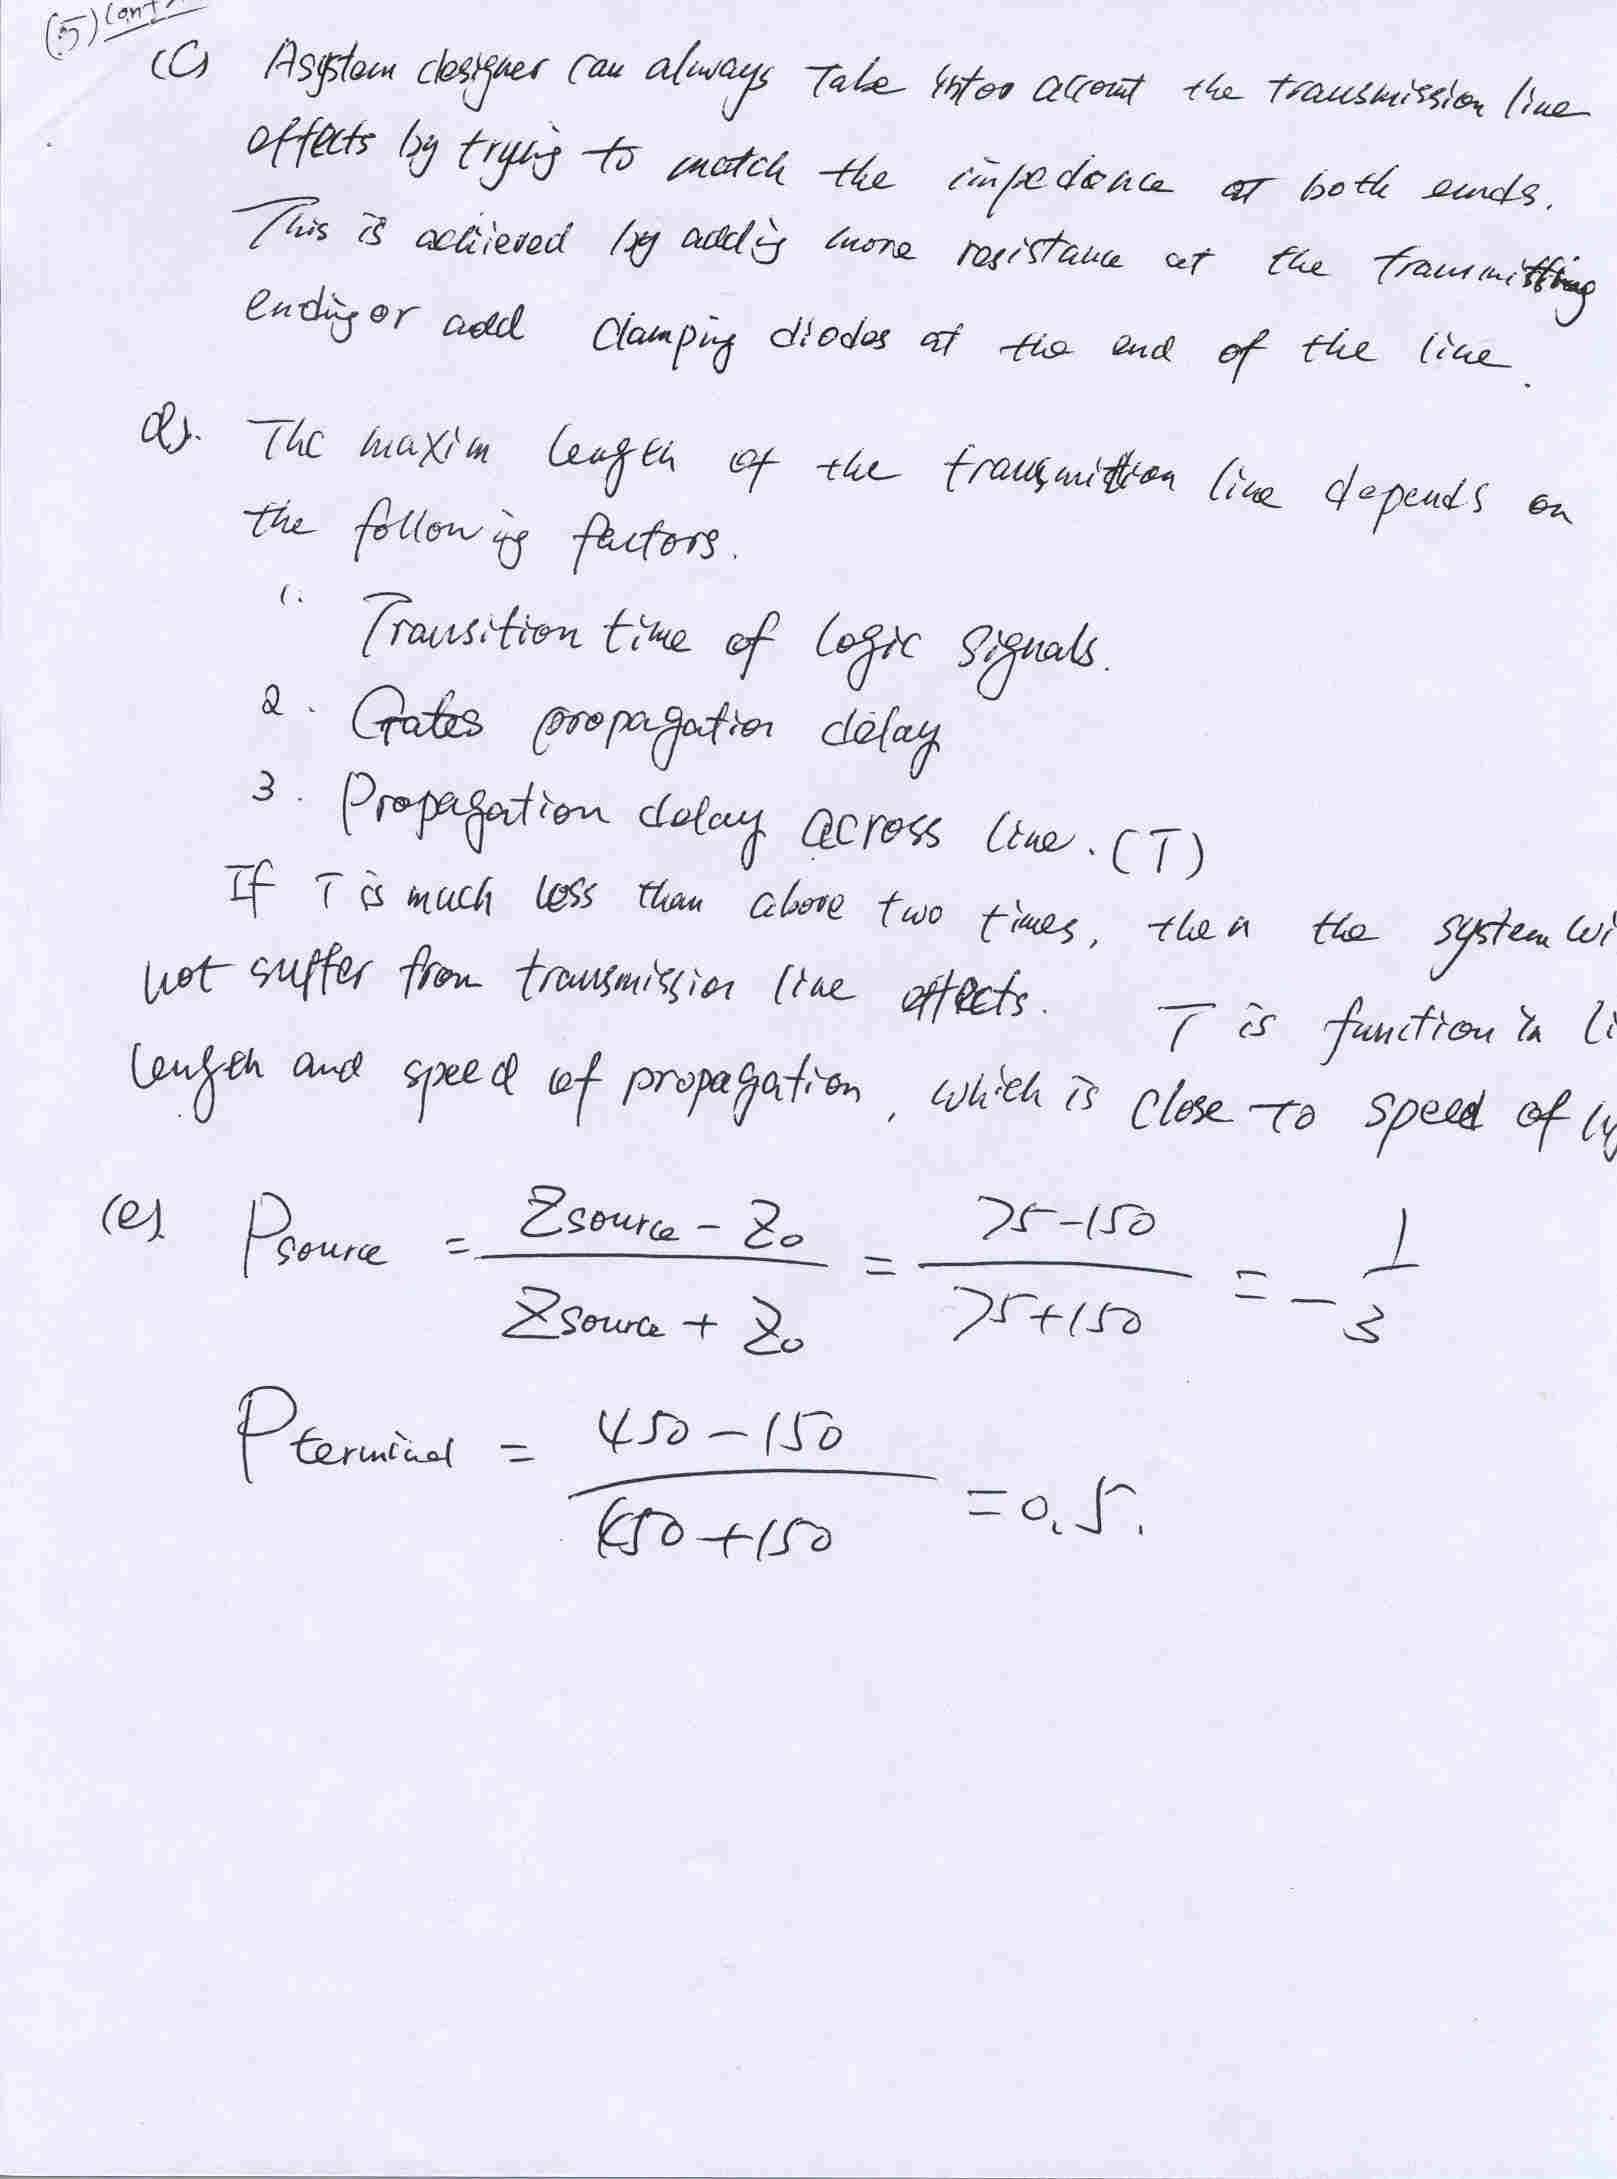 (5) cont
(c) A system designer can always Take intoo account the transmission line
effects by trying to match the impedance at both ends.
This is achieved by adding more resistance at the transmitting
ending or add clamping diodes at the end of the line.
d). The maxim length of the transmission line depends on
the following factors.
1. Transition time of logic signals.
2. Gates propagation delay
3. Propagation delay across line. (T)
If T is much less than above two times, then the system wi
not suffer from transmission line effects. T is function in li
length and speed of propagation, which is close to speed of
(e) ρsource = (Zsource - Z0) / (Zsource + Z0) = (75-150) / (75+150) = - 1/3
ρterminal = (450-150) / (450+150) = 0.5.